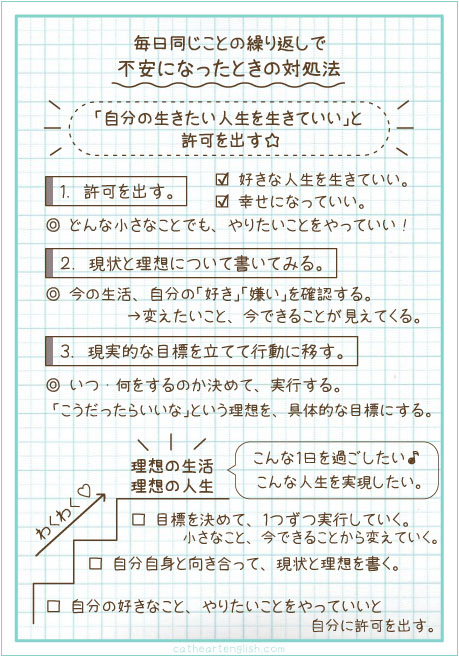 毎日同じことの繰り返しで
不安になったときの対処法
「自分の生きたい人生を生きていい」と
許可を出す☆
1. 許可を出す。
☑ 好きな人生を生きていい。
☑ 幸せになっていい。
◎ どんな小さなことでも、やりたいことをやっていい！
2. 現状と理想について書いてみる。
◎ 今の生活、自分の「好き」「嫌い」を確認する。
→変えたいこと、今できることが見えてくる。
3. 現実的な目標を立てて行動に移す。
◎ いつ・何をするのか決めて、実行する。
「こうだったらいいな」という理想を、具体的な目標にする。
理想の生活
理想の人生
こんな1日を過ごしたい♪
こんな人生を実現したい。
わくわく♡
□ 目標を決めて、1つずつ実行していく。
小さなこと、今できることから変えていく。
□ 自分自身と向き合って、現状と理想を書く。
□ 自分の好きなこと、やりたいことをやっていいと
自分に許可を出す。
catheartenglish.com